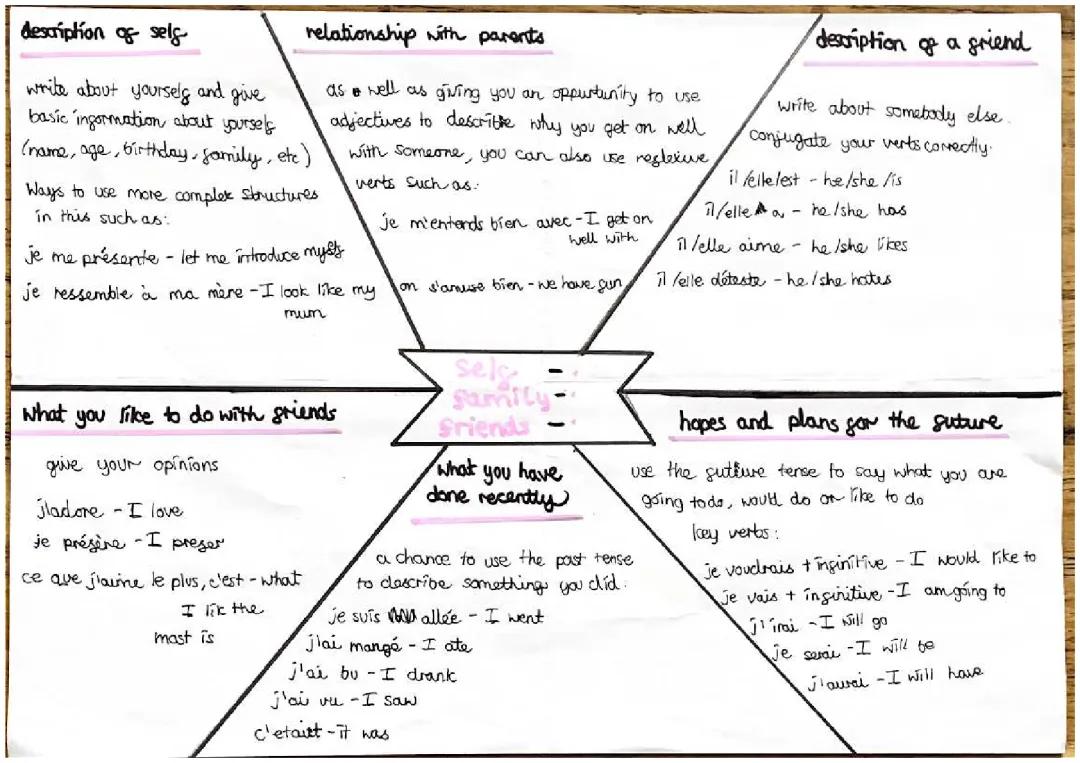 description of self
write about yourself and give
basic information about yourself
(name, age, birthday, family, etc)
Ways to use more complex structures
in this such as:
je me présente - let me introduce myself
je ressemble à ma mère - I look like my
mum
relationship with parents
as well as giving you an oppurtunity to use
adjectives to describe why you get on well
with someone, you can also use reflexive
verbs such as:
je m'entends bien avec - I get on
well with
on s'amuse bien - we have fun
description of a friend
write about somebody else.
conjugate your verbs correctly.
il/elle/est - he/she/is
il/elle a - he/she has
il/elle aime - he/she likes
il/elle déteste - he/she hates
self
family
friends
what you like to do with friends
give your opinions
j'adore - I love
je préfère - I prefer
ce que j'aime le plus, c'est - what
I lik the
most is
what you have
done recently
a chance to use the past tense
to describe something you did.
je suis allée - I went
j'ai mangé - I ate
j'ai bu - I drank
j'ai vu - I saw
c'etait - it was
hopes and plans for the future
use the future tense to say what you are
going to do, would do or like to do
key verbs:
je voudrais + infinitive - I would like to
je vais + infinitive - I am going to
j'irai - I will go
je serai - I will be
j'aurai - I will have